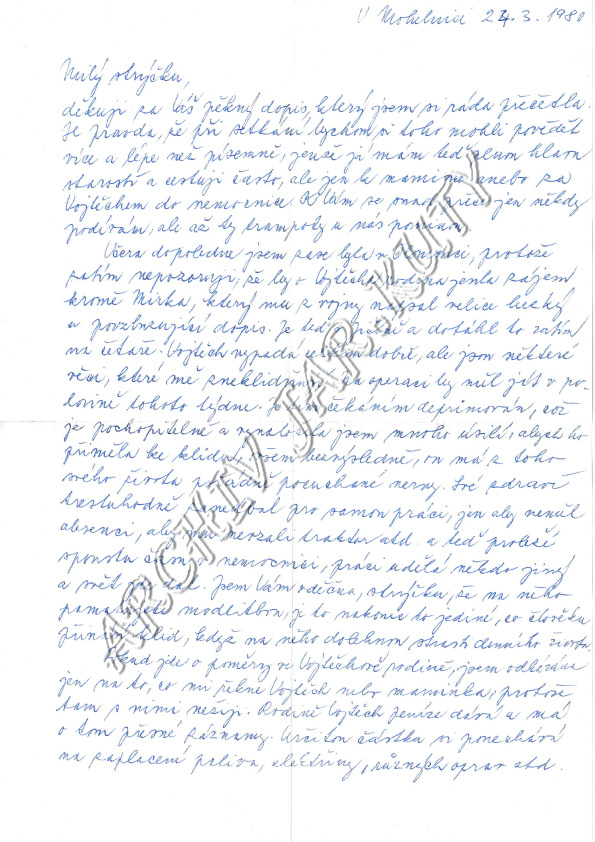 V Mohelnici 24.3.1980
Milý strýčku,
děkuji za Váš pěkný dopis, který jsem si ráda přečetla.
Je pravda, že při setkání bychom si toho mohli povědět
více a lépe než písemně, jenže já mám teď plnou hlavu
starostí a cestuji často, ale jen k mamince anebo za
Vojtěchem do nemocnice. K Vám se snad přece jen někdy
podívám, ale až ty trampoty u nás pominou.
Včera dopoledne jsem zase byla v Olomouci, protože
zatím nepozoruji, že by o Vojtěcha rodina jevila zájem
kromě Mirka, který mu z vojny napsal velice hezký
a povzbuzující dopis. Je teď a dotáhl to zatím
na četaře. Vojtěch vypadá celkem dobře, ale jsou některé
věci, které mě zneklidňují. Na operaci by měl jít v po-
lovině tohoto týdne. Je tím čekáním deprimován, což
je pochopitelné a vynaložila jsem mnoho úsilí, abych ho
přiměla ke klidu, ovšem bezvýsledně, on má z toho
svého života pořádně pocuchané nervy. Své zdraví
trestuhodně zanedbal pro samou práci, jen aby neměl
absenci, aby mu nevzali traktor atd. a teď proleží
spoustu času v nemocnici, práci udělá někdo jiný
a svět jde dál. Jsem Vám vděčna, strýčku, že na něho
pamatujete modlitbou, je to nakonec to jediné, co člověku
přinese klid, když na něho dolehnou strasti denního života.
Pokud jde o poměry ve Vojtěchově rodině, jsem odkázána
jen na to, co mi řekne Vojtěch nebo maminka, protože
tam s nimi nežiji. Rodině Vojtěch peníze dává a má
o tom přesné záznamy. Určitou částku si ponechává
na zaplacení paliva, elektřiny, různých oprav atd.
ARCHIV JAR. KUTY